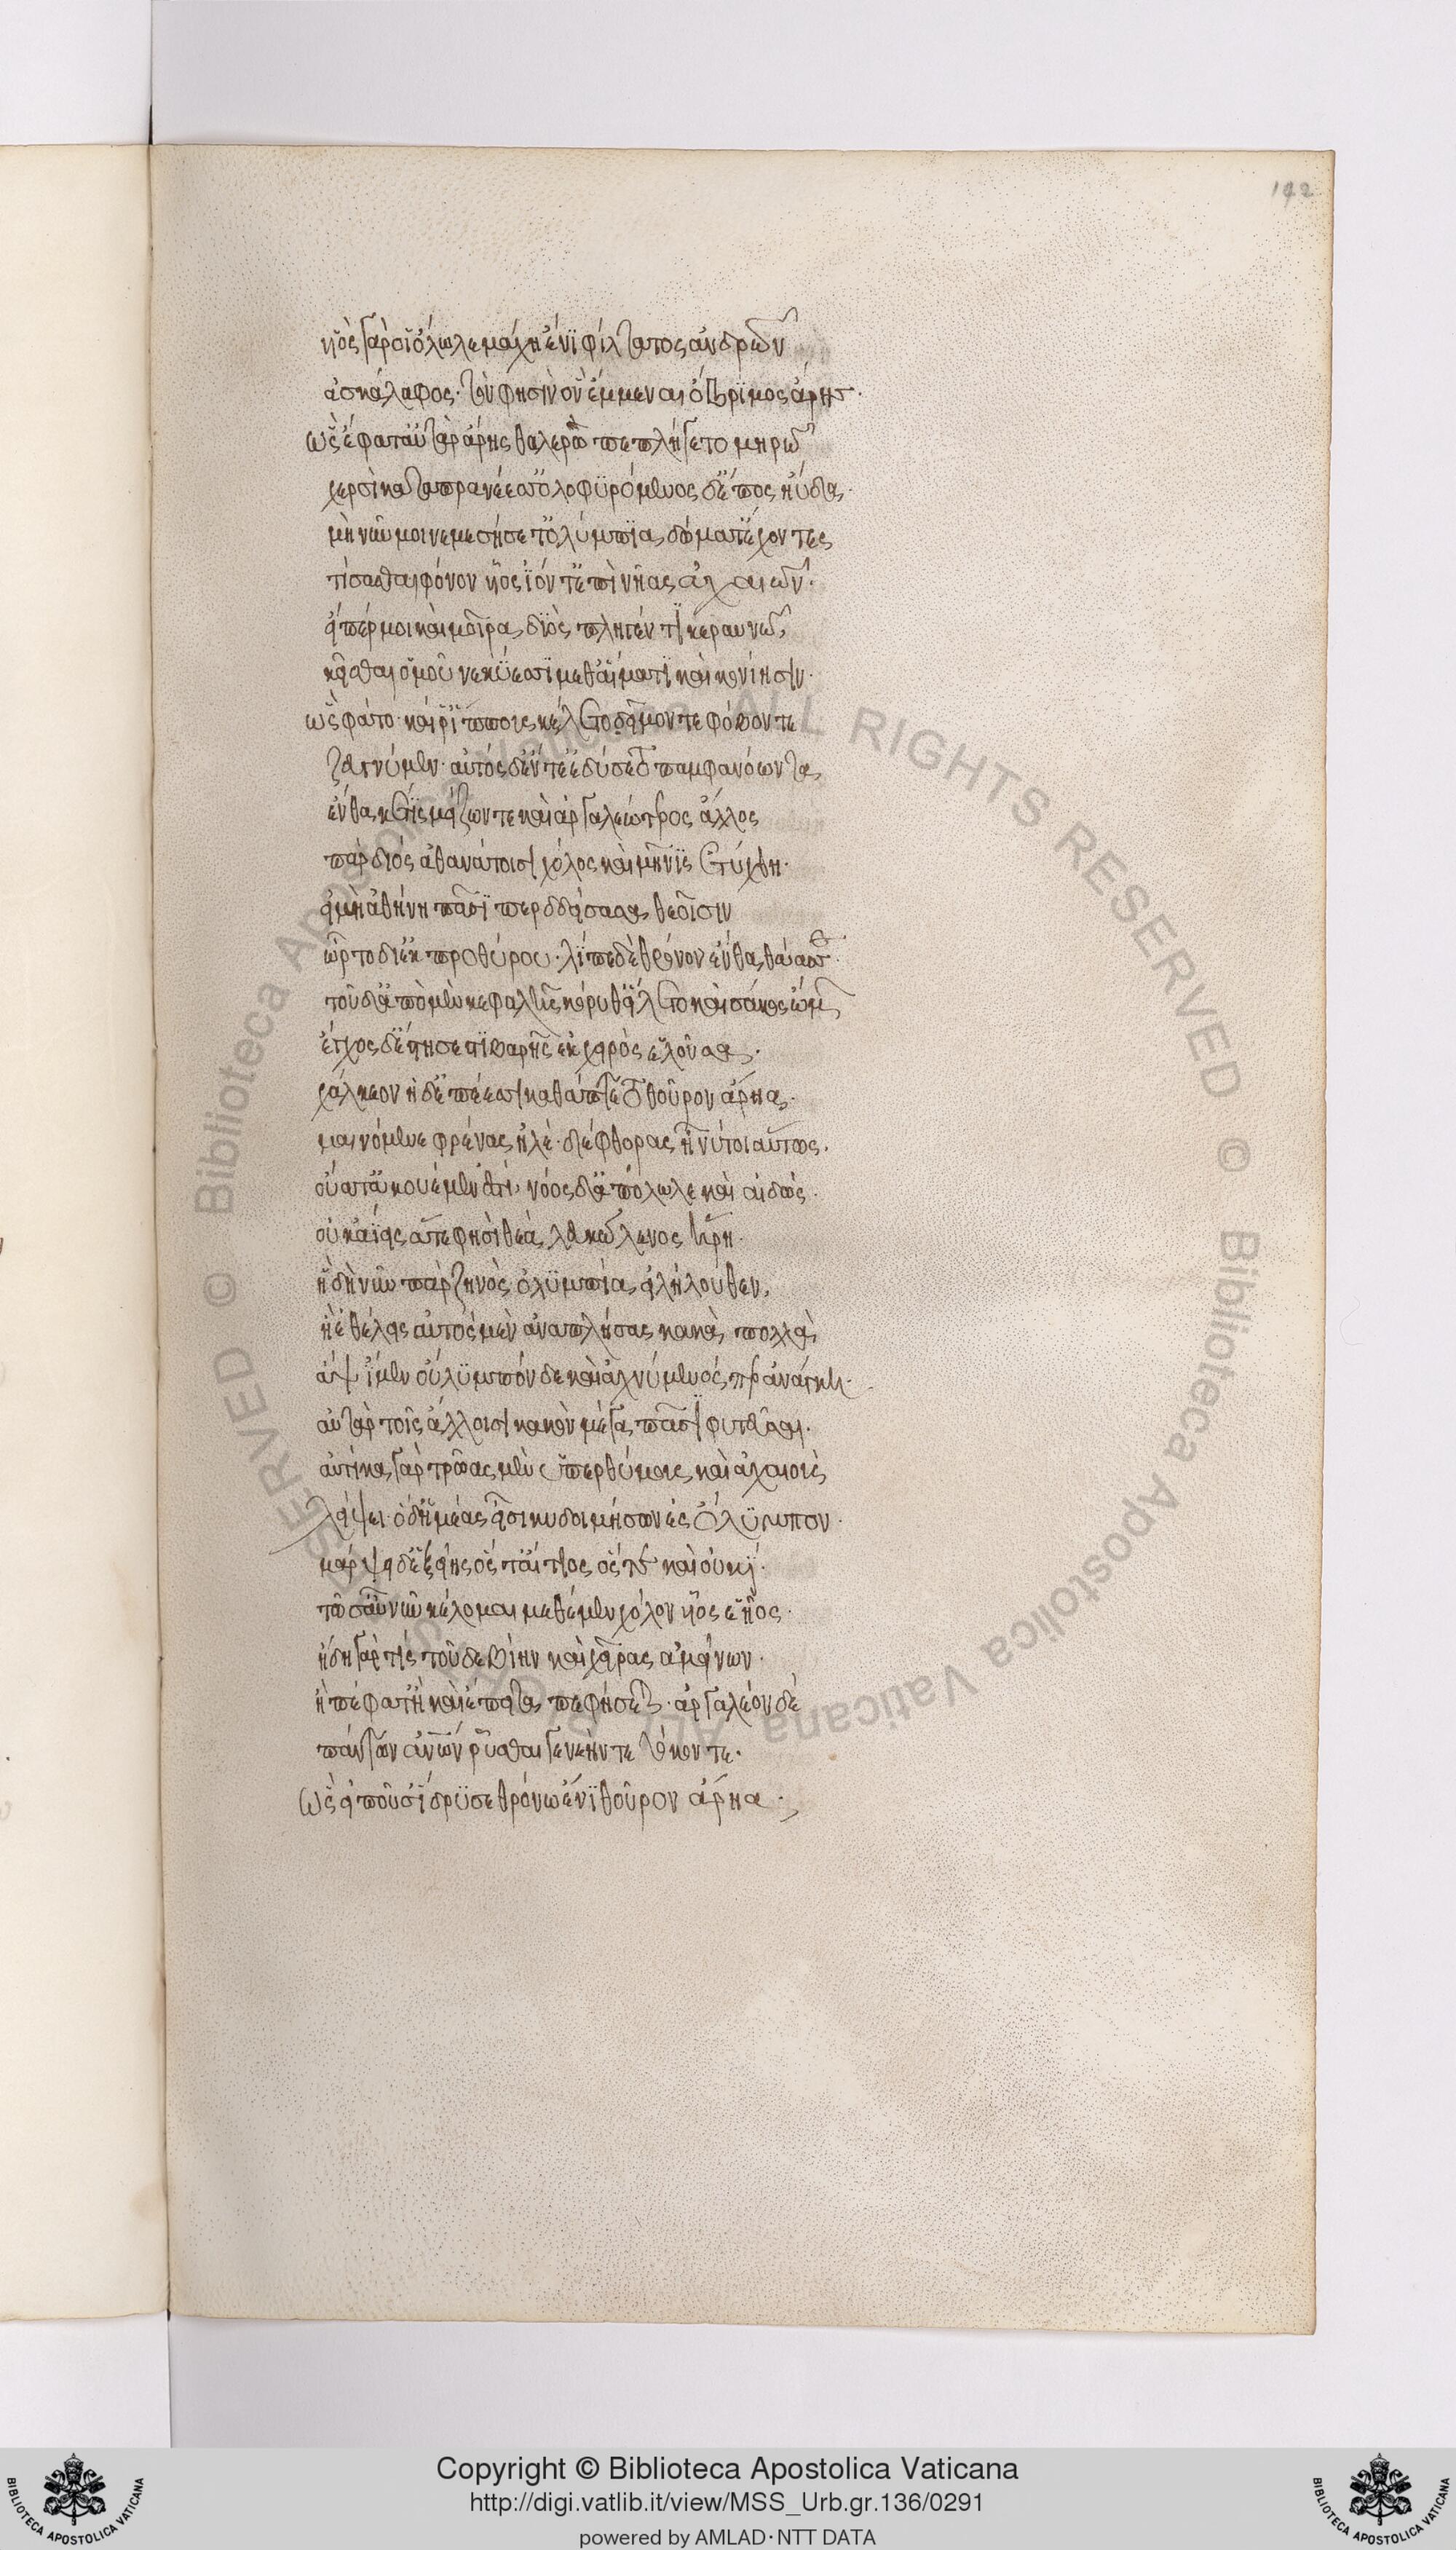 142
υἱὸς γάρ οἱ ὄλωλε μάχη ἔνι φίλτατος ἀνδρῶν
ἀσκάλαφος· τὸν φησὶν ὃν ἔμμεναι ὄβριμος ἄρης·
ὣς ἔφατ' αὐτὰρ ἄρης θαλερὼ πεπλήγετο μηρώ
χερσὶ καταπρηνέεσσ' ὀλοφυρόμενος δ' ἔπος ηὔδα·
μὴ νῦν μοι νεμεσήσετ' ὀλύμπια δώματ' ἔχοντες
τίσασθαι φόνον υἷος ἰόντ' ἐπὶ νῆας ἀχαιῶν·
εἴπερ μοι καὶ μοῖρα διὸς πληγέντι κεραυνῶ,
κεῖσθαι ὁμοῦ νεκύεσσι μεθ' αἵματι καὶ κονίησιν·
ὣς φάτο· καί ῥ' ἵππους κέλετο δεῖμόν τε φόβον τε
ζευγνύμεν· αὐτὸς δ' ἔντε' ἐδύσετο παμφανόωντα,
ἔνθα κ' ἔτι μείζων τε καὶ ἀργαλεώτερος ἄλλος
πὰρ διὸς ἀθανάτοισι χόλος καὶ μῆνις ἐτύχθη·
εἰ μὴ ἀθήνη πᾶσι περιδδείσασα θεοῖσιν
ὦρτο διὲκ προθύρου· λίπε δὲ θρόνον ἔνθα θάασσε·
τοῦ δ' ἀπὸ μὲν κεφαλῆς κόρυθ' εἵλετο καὶ σάκος ὤμων
ἔγχος δ' ἔστησε στιβαρῆς ἐκ χειρὸς ἑλοῦσα·
χάλκεον ἡ δ' ἐπέεσσι καθάπτετο θοῦρον ἄρηα·
μαινόμενε φρένας ἠλέ· διέφθορας ἦ νύ τοι αὔτως·
οὔατ' ἀκουέμεν ἐστί· νόος δ' ἀπόλωλε καὶ αἰδώς·
οὐκ ἀΐεις ἅ τέ φησὶ θεὰ λευκώλενος ἥρη·
ἣ δὴ νῦν πὰρ ζηνὸς ὀλυμπίου εἰλήλουθεν,
ἢ ἐθέλεις αὐτὸς μὲν ἀναπλήσας κακὰ πολλὰ
ἂψ ἴμεν οὔλυμπόνδε καὶ ἀχνύμενός περ ἀνάγκη·
αὐτὰρ τοῖς ἄλλοισι κακὸν μέγα πᾶσι φυτεῦσαι·
αὐτίκα γὰρ τρῶας μὲν ὑπερθύμους καὶ ἀχαιοὺς
λείψει· ὁ δ' ἡμέας εἶσι κυδοιμήσων ἐς ὄλυμπον·
μάρψει δ' ἑξείης ὅς τ' αἴτιος ὅς τε καὶ οὐκί·
τῶ σ' αὖ νῦν κέλομαι μεθέμεν χόλον υἷος ἑῆος·
ἤδη γάρ τις τοῦδε βίην καὶ χεῖρας ἀμείνων·
ἢ πέφατ' ἢ καὶ ἔπειτα πεφήσεται· ἀργαλέον δὲ
πάντων ἀνθρώπων ῥῦσθαι γενεήν τε τόκον τε·
ὣς εἰποῦσ' ἵδρυσε θρόνω ἔνι θοῦρον ἄρηα·
© Biblioteca Apostolica Vaticana ALL RIGHTS RESERVED © Biblioteca Apostolica Vaticana ALL RIGHTS RESERVED
BIBLIOTECA APOSTOLICA VATICANA
Copyright © Biblioteca Apostolica Vaticana
http://digi.vatlib.it/view/MSS_Urb.gr.136/0291
powered by AMLAD·NTT DATA
BIBLIOTECA APOSTOLICA VATICANA